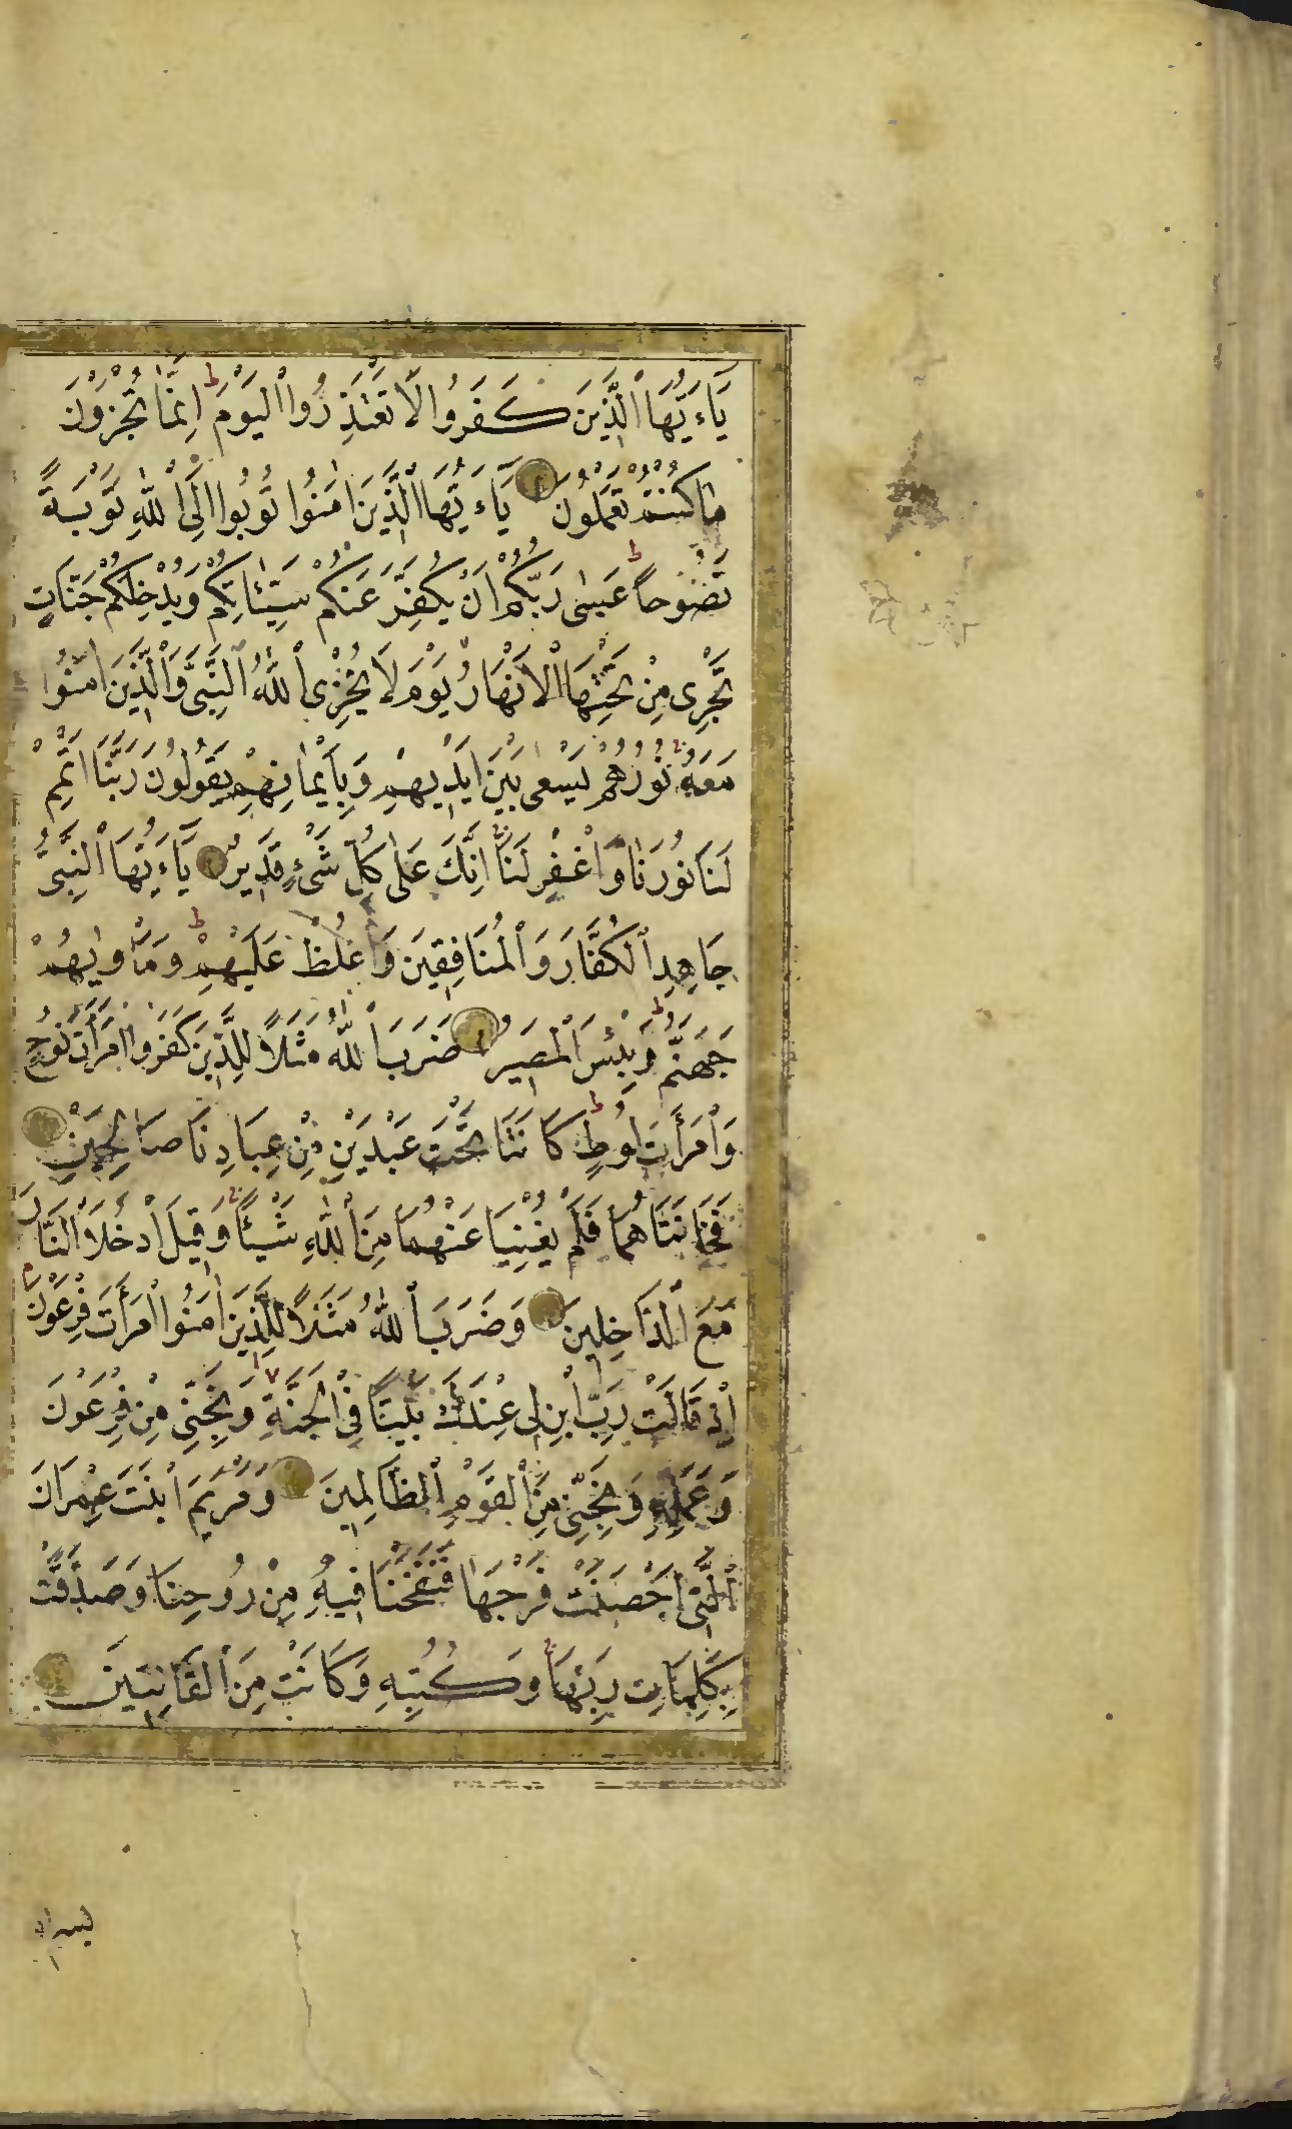 يَاءَيُّهَا ٱلَّذِينَ كَفَرُوا لَا تَعْتَذِرُوا ٱلْيَوْمَ ط اِنَّمَا تُجْزَوْنَ
مَا كُنْتُمْ تَعْمَلُونَ يَاءَيُّهَا ٱلَّذِينَ اٰمَنُوا تُوبُوا اِلَى ٱللّٰهِ تَوْبَةً
نَصُوحًا ط عَسٰى رَبُّكُمْ اَنْ يُكَفِّرَ عَنْكُمْ سَيِّئَاتِكُمْ وَيُدْخِلَكُمْ جَنَّاتٍ
تَجْرِى مِنْ تَحْتِهَا ٱلْاَنْهَارُ يَوْمَ لَا يُخْزِى ٱللّٰهُ ٱلنَّبِىَّ وَٱلَّذِينَ اٰمَنُوا
مَعَهُ نُورُهُمْ يَسْعٰى بَيْنَ اَيْدِيهِمْ وَبِاَيْمَانِهِمْ يَقُولُونَ رَبَّنَا اَتْمِمْ
لَنَا نُورَنَا وَٱغْفِرْ لَنَا اِنَّكَ عَلٰى كُلِّ شَىْءٍ قَدِيرٌ يَاءَيُّهَا ٱلنَّبِىُّ
جَاهِدِ ٱلْكُفَّارَ وَٱلْمُنَافِقِينَ وَٱغْلُظْ عَلَيْهِمْ ط وَمَأْوٰيهُمْ
جَهَنَّمُ ط وَبِئْسَ ٱلْمَصِيرُ ضَرَبَ ٱللّٰهُ مَثَلًا لِلَّذِينَ كَفَرُوا ٱمْرَأَتَ نُوحٍ
وَٱمْرَأَتَ لُوطٍ ط كَانَتَا تَحْتَ عَبْدَيْنِ مِنْ عِبَادِنَا صَالِحَيْنِ
فَخَانَتَاهُمَا فَلَمْ يُغْنِيَا عَنْهُمَا مِنَ ٱللّٰهِ شَيْئًا وَقِيلَ ٱدْخُلَا ٱلنَّارَ
مَعَ ٱلدَّاخِلِينَ وَضَرَبَ ٱللّٰهُ مَثَلًا لِلَّذِينَ اٰمَنُوا ٱمْرَأَتَ فِرْعَوْنَ م
اِذْ قَالَتْ رَبِّ ٱبْنِ لِى عِنْدَكَ بَيْتًا فِى ٱلْجَنَّةِ وَنَجِّنِى مِنْ فِرْعَوْنَ
وَعَمَلِهِ وَنَجِّنِى مِنَ ٱلْقَوْمِ ٱلظَّالِمِينَ وَمَرْيَمَ ٱبْنَتَ عِمْرَانَ
ٱلَّتِى اَحْصَنَتْ فَرْجَهَا فَنَفَخْنَا فِيهِ مِنْ رُوحِنَا وَصَدَّقَتْ
بِكَلِمَاتِ رَبِّهَا وَكُتُبِهِ وَكَانَتْ مِنَ ٱلْقَانِتِينَ